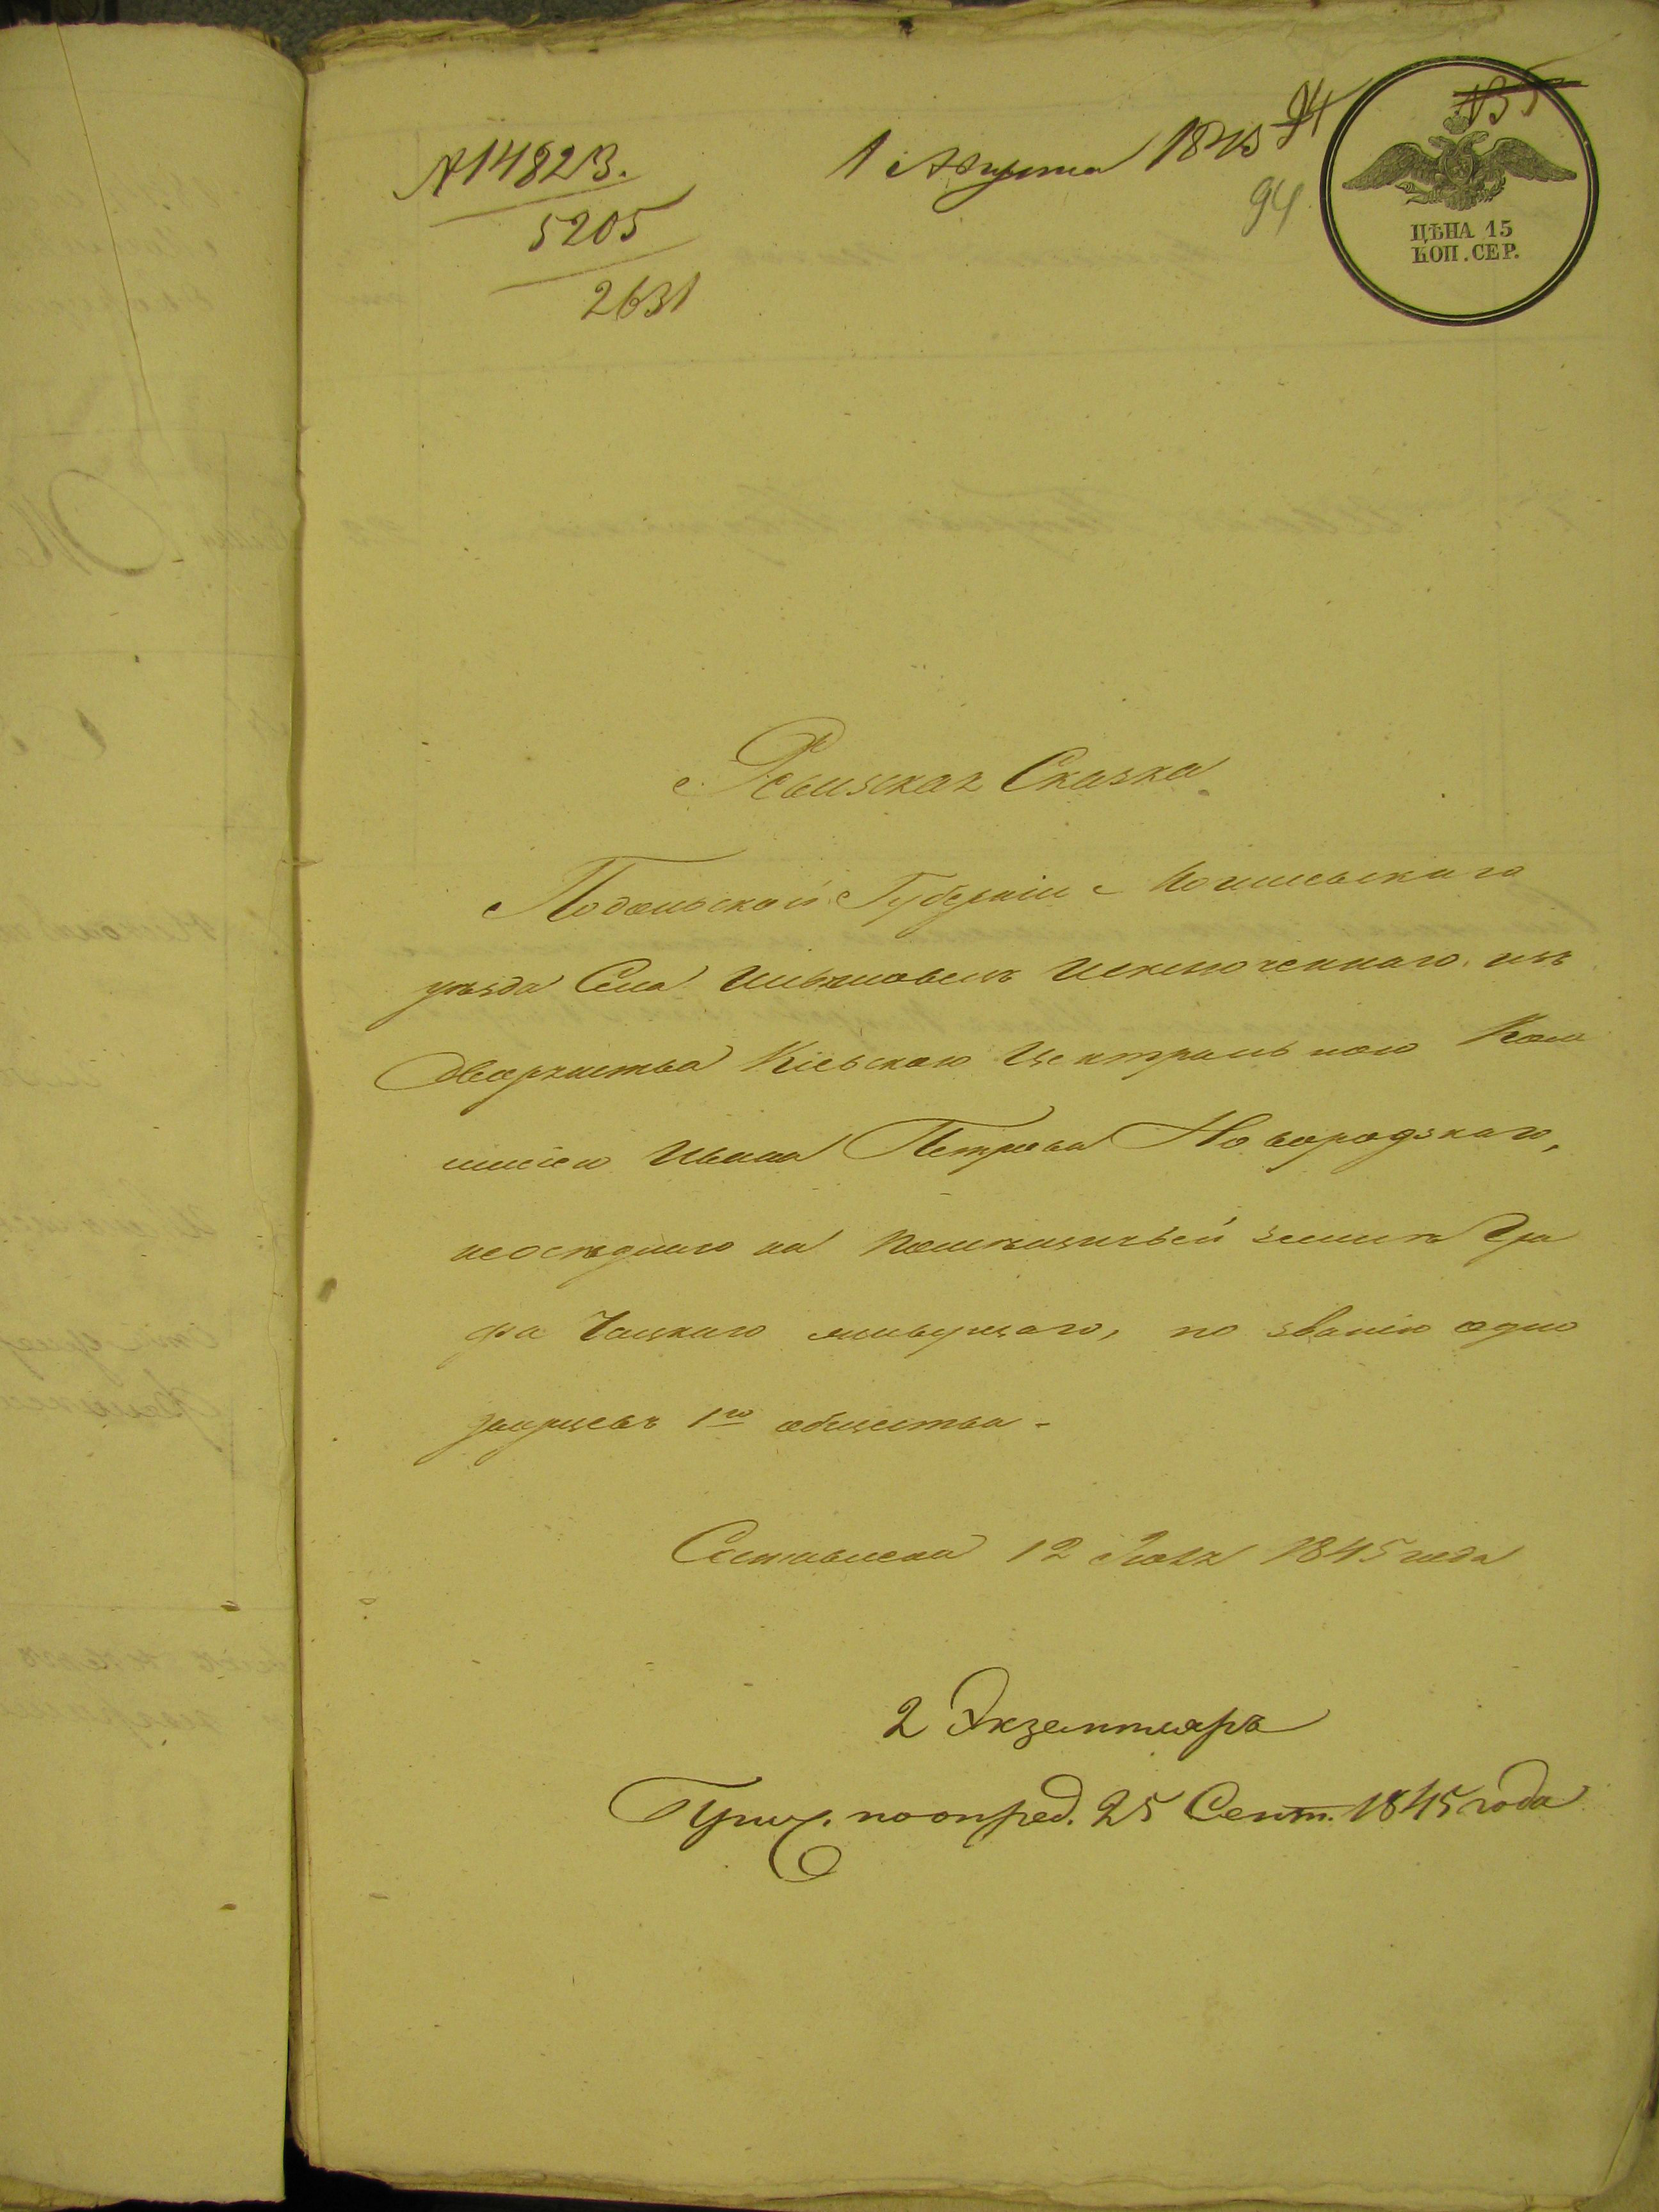 № 14823.
5205
2631
1 Августа 1845
94
94
ЦѢНА 15
КОП. СЕР.
Ревизская Сказка
Подольской Губерніи Могилевскаго
уѣзда Села исключеннаго изъ
дворянства Кіевскою Центральною Ком
мисіею Ивана Петрова Новородзкаго,
неосѣдлаго на помѣщичьей землѣ Гра
фа Чацкаго живущаго, по званію одно
дворцевъ 1го общества -
Составлена 12 Іюля 1845 года
2 Экземпляръ
Прич. по опред. 25 Сент. 1845 года